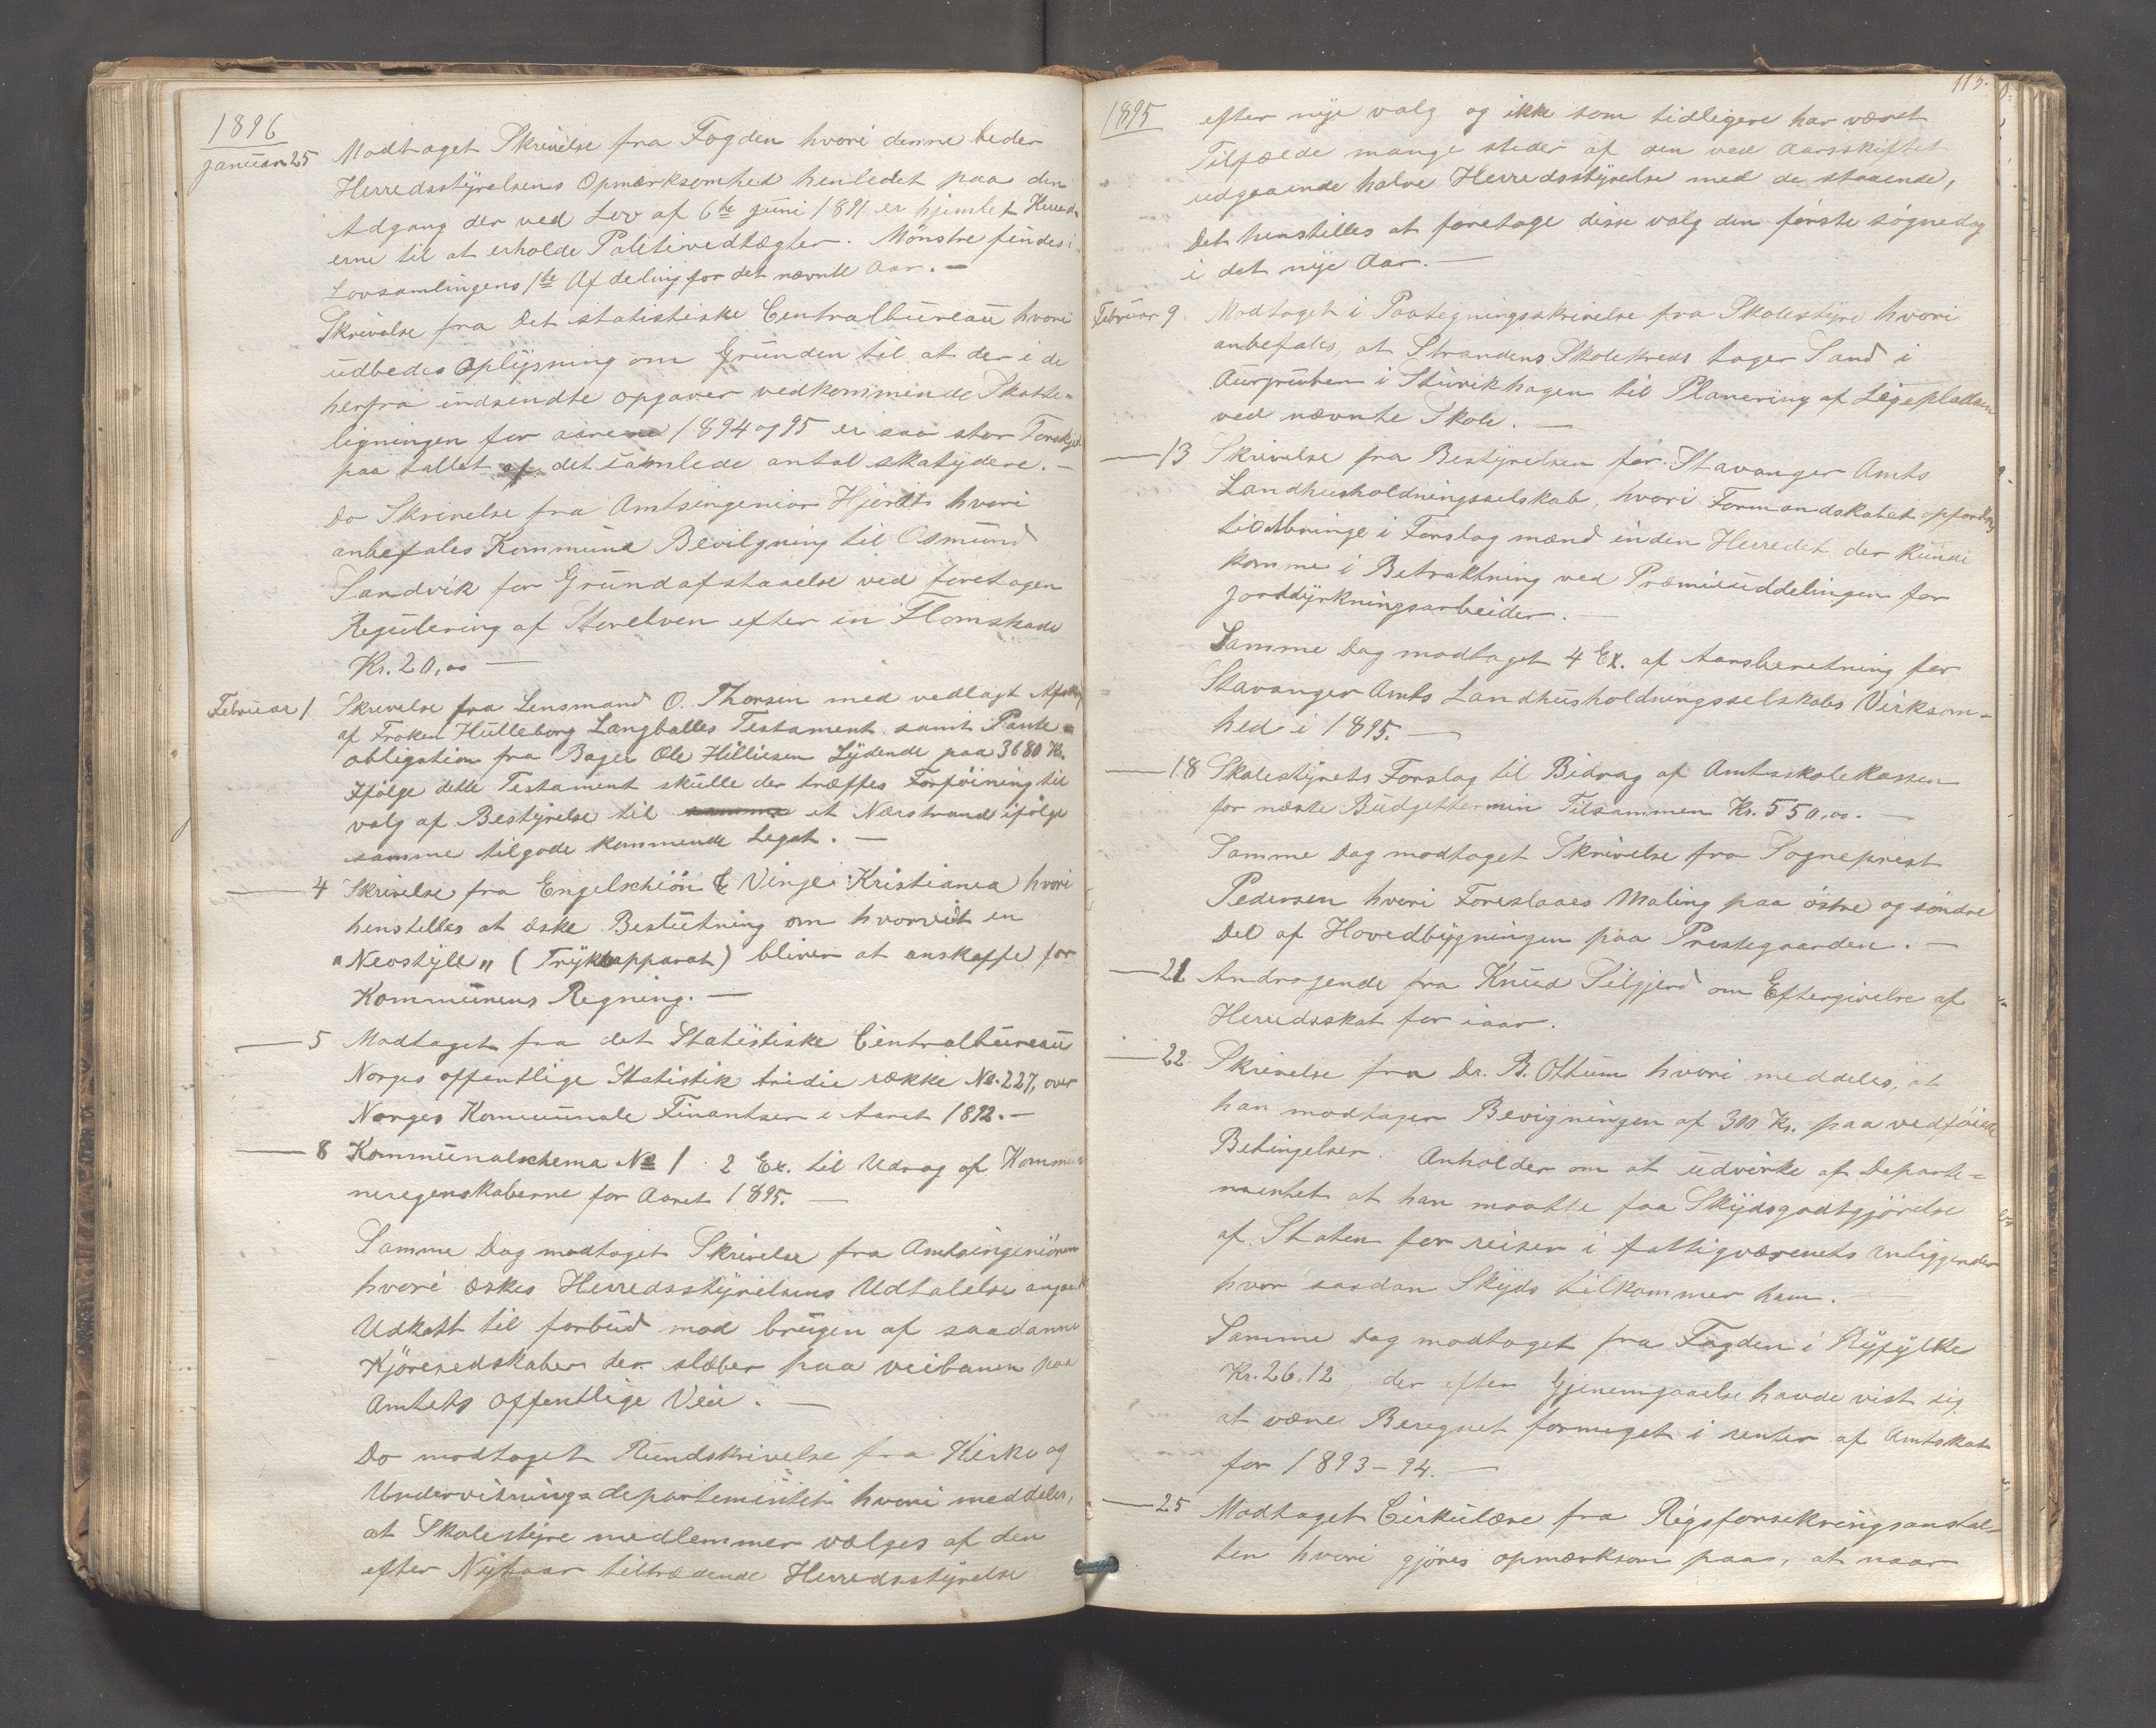 1896
Januar 25 Modtaget Skrivelse fra Fogden hvori denne beder
Herredsstyrelsens Opmærksomhed henledet paa den
Adgang der ved Lov af 6te Juni 1891 er hjemlet Herred-
erne til at erholde Politivedtægter. Mönstre findes i
Lovsamlingens 1ste Afdeling for det nævnte Aar. —
Skrivelse fra Det statistiske Centralbureau hvori
udbedes Oplysning om Grunden til at der i de
herfra indsendte opgaver vedkommende Skatte-
ligningen for aarene 1894 og 95 er saa stor Forskjel
paa tallet af det samlede antal skatydere. —
Do Skrivelse fra Amtsingeniør Hjerdt hvori
anbefales Kommune Bevilgning til Osmund
Sandvik for Grundafstaaelse ved foretagen
Regulering af Storelven efter en Flomskade
Kr. 20,00 —
Februar 1. Skrivelse fra Lensmand O. Thorsen med vedlagt Afskrf
af Frøken Hulleborg Langballes Testament samt Pante-
obligation fra Bager Ole Hilliesen Lydende paa 3680 Kr.
Ifölge dette Testament skulle der træffes Forföining til
valg af Bestyrelse til samme et Nærstrand ifölge
samme tilgode kommende Legat. —
— 4 Skrivelse fra Engelschiön & Vinje Kristiania hvori
henstilles at æske Beslutning om hvorvidt en
"Neostyle" (Trykapparat) bliver at anskaffe for
Kommunens Regning. —
— 5 Modtaget fra det Statistiske Centralbureau
Norges offentlige Statistik tridie række No. 227, over
Norges Kommunale Finantser i Aaret 1892. —
— 8 Kommunalschema No 1. 2 Ex. til Udrag af Kommu-
neregenskaberne for Aaret 1895. —
Samme Dag modtaget Skrivelse fra Amtsingeniören
hvori æskes Herredsstyrelsens Udtalelse angaae
Udkast til forbud mod brugen af saadanne
Kjöreredskaber der slæber paa veibanen paa
Amtets offentlige Veie. —
Do modtaget Rundskrivelse fra Kirke og
Undervisningsdepartementet hvori meddeles,
at Skolestyre medlemmer vælges af den
efter Nytaar tiltrædende Herredsstyrelse
113.
1895
efter nye valg og ikke som tidligere har været
Tilfælde mange steder af den ved aarsskiftet
udgaaende halve Herredsstyrelse med de staaende,
Det henstilles at foretage disse valg den förste sögnedag
i det nye Aar. —
Februar 9. Modtaget i Paategningsskrivelse fra Skolestyre hvori
anbefales, at Strandens Skolekreds tager Sand i
Aurgruben i Stuvikhagen til Planering af Legepladsen
ved nævnte Skole. —
— 13 Skrivelse fra Bestyrelsen for Stavanger Amts
Landhusholdningsselskab, hvori Formandskabet opfordres
til at bringe i Forslag mænd inden Herredet der kunde
komme i Betraktning ved Præmieuddelingen for
Jorddyrkningsarbeider. —
Samme Dag modtaget 4 Ex. af Aarsberetning for
Stavanger Amts Landhusholdningsselskabs Virksom-
hed i 1895. —
— 18 Skolestyrets Forslag til Bidrag af Amtsskolekassen
for næste Budgettermin Tilsammen Kr. 550,00. —
Samme Dag modtaget Skrivelse fra Sogneprest
Pedersen hvori Foreslaaes Maling paa östre og söndre
Del af Hovedbygningen paa Prestegaarden. —
— 21 Andragende fra Knud Silgjerd om Eftergivelse af
Herredsskat for iaar.
— 22 Skrivelse fra Dr. B. Ottum hvori meddeles, at
han modtager Bevigningen af 300 Kr. paa vedföiede
Betingelser. Anholder om at udvirke af Departe-
mentet at han maatte faa Skydsgodtgjörelse
af Staten for reiser i fattigvæsenets Anliggender
hvor saadan Skyds tilkommer ham. —
Samme Dag modtaget fra Fogden i Ryfylke
Kr. 26.12, der efter Gjenemgaaelse havde vist sig
at være Beregnet formeget i renter af Amtskat
for 1893-94. —
— 25 Modtaget Cirkulære fra Rigsforsikringsanstal-
ten hvori gjöres opmærksom paa, at naar